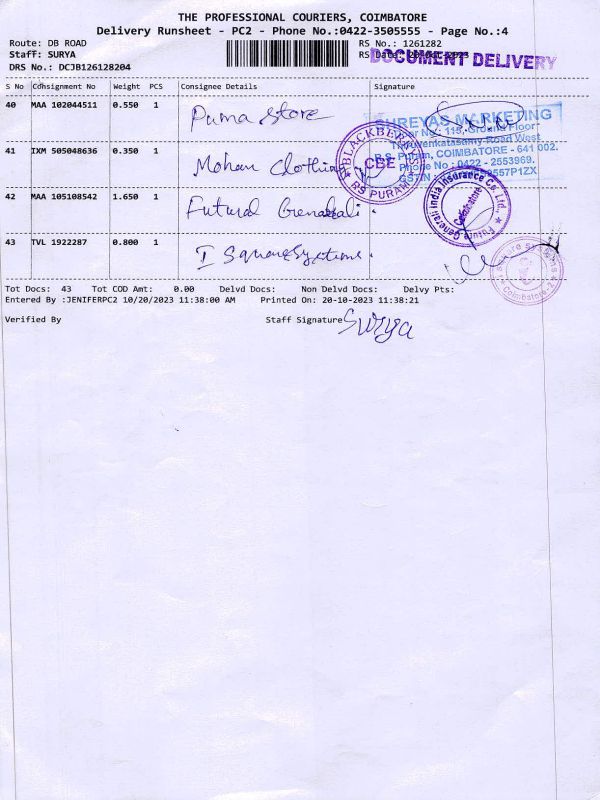 THE PROFESSIONAL COURIERS, COIMBATORE
Delivery Runsheet - PC2 - Phone No.:0422-3505555 - Page No.:4
Route: DB ROAD
RS No.: 1261282
Staff: SURYA
DOCUMENT DELIVERY
DRS No.: DCJB126128204
S No Consignment No Weight PCS Consignee Details Signature
40 MAA 102044511 0.550 1 Puma Store
SHREYAS MARKETING
115, Ground Floor
Thiruvenkatasamy Road West
R.S. Puram, COIMBATORE - 641 002.
Phone No : 0422 - 2553969.
41 IXM 505048636 0.350 1 Mohan Clothing
BLACKBERRYS
CBE
RS PURAM
42 MAA 105108542 1.650 1 Futural
Future Generali India Insurance Co. Ltd.,
Coimbatore
43 TVL 1922287 0.800 1 I Square Systems.
Coimbatore-2
Tot Docs: 43 Tot COD Amt: 0.00 Delvd Docs: Non Delvd Docs: Delvy Pts:
Entered By :JENIFERPC2 10/20/2023 11:38:00 AM Printed On: 20-10-2023 11:38:21
Verified By Staff Signature Surya